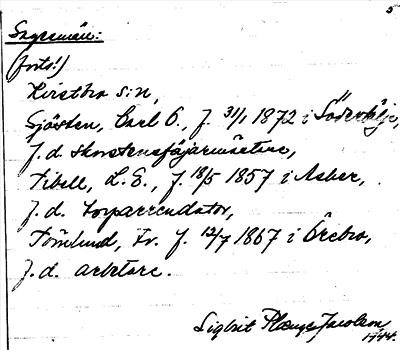 5
Sagesmän:
(forts!)
Kirstbo s:n,
Sjösten, Carl G., f. 31/1 1872 i Södertälje,
f.d. skorstensfejarmästare,
Tibell, L. E., f. 18/5 1857 i Asker,
f.d. torparrendator,
Törnlund, Fr. f. 12/7 1867 i Örebro,
f.d. arbetare.
Sigbrit Plænge Jacobson
1944.